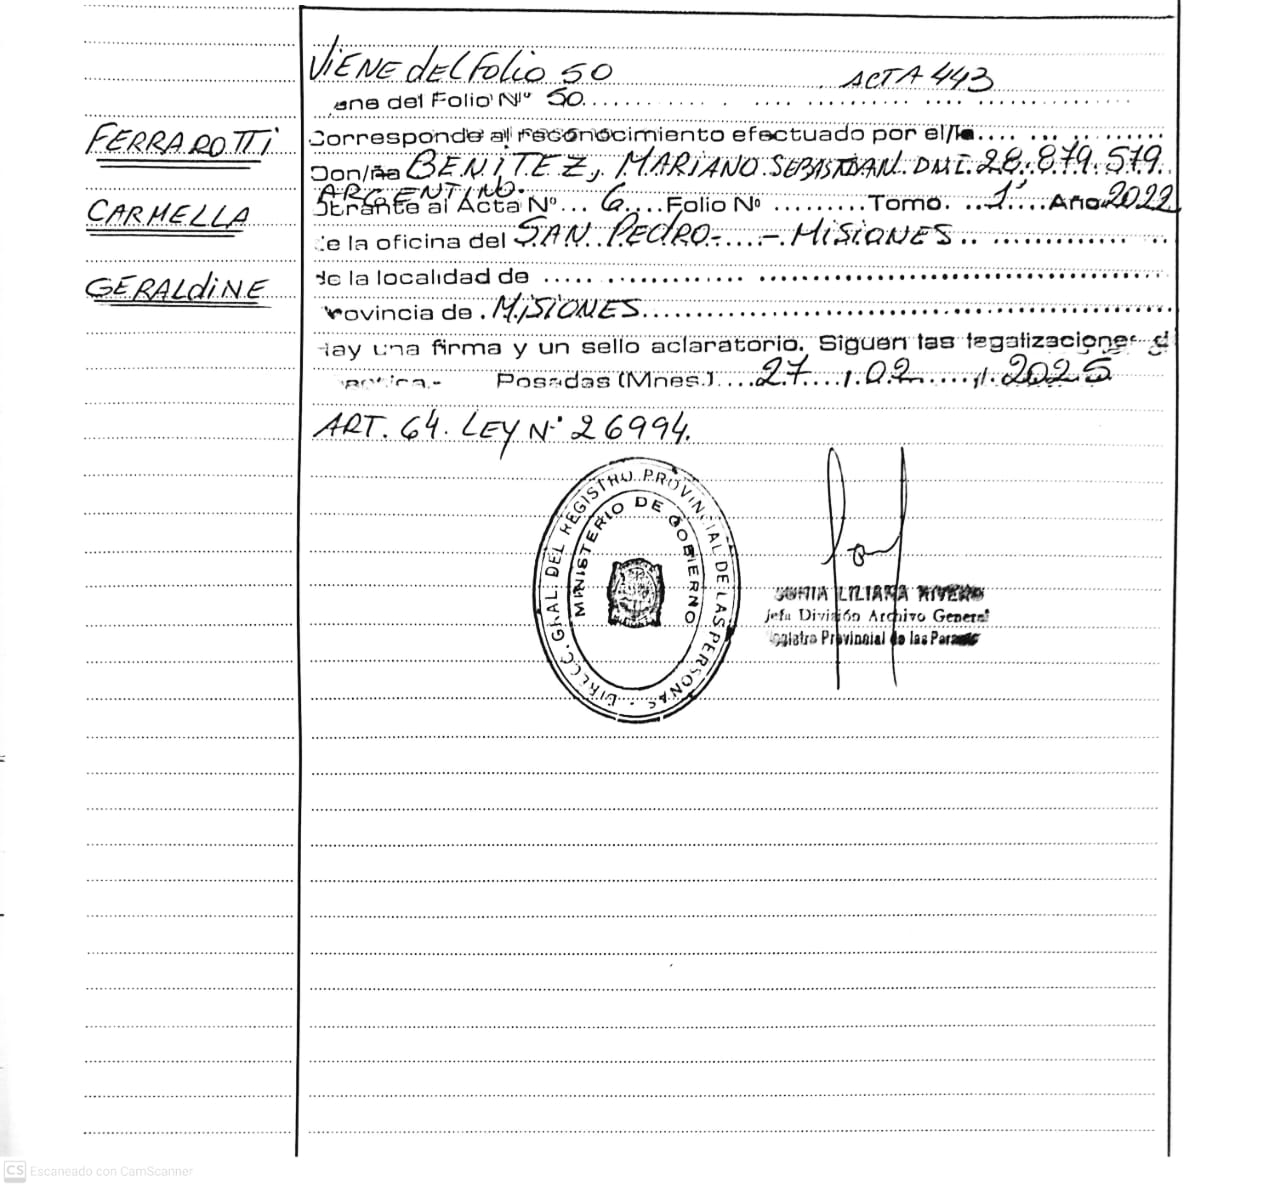 ViENE dEL Folio 50 ACTA 443
ene del Folio Nº 50
FERRAROTTi
Corresponde al reconocimiento efectuado por el/la
Don/ña BENITEZ, MARIANO SEBASTIAN. DNI. 28.879.579.
ARGENTINO.
Obrante al Acta Nº 6 Folio Nº Tomo. 1º Año 2022
CARMELLA
de la oficina del SAN PEDRO - MiSiONES
de la localidad de
GERALdiNE
Provincia de MiSiONES
Hay una firma y un sello aclaratorio. Siguen las legalizaciones d
Posadas (Mnes.) 27 / 02 / 2025
ART. 64. LEY Nº 26994.
DIRECC. GRAL. DEL REGISTRO PROVINCIAL DE LAS PERSONAS
MINISTERIO DE GOBIERNO
LILIANA RIVERO
Jefa División Archivo General
Registro Provincial de las Personas
CS Escaneado con CamScanner